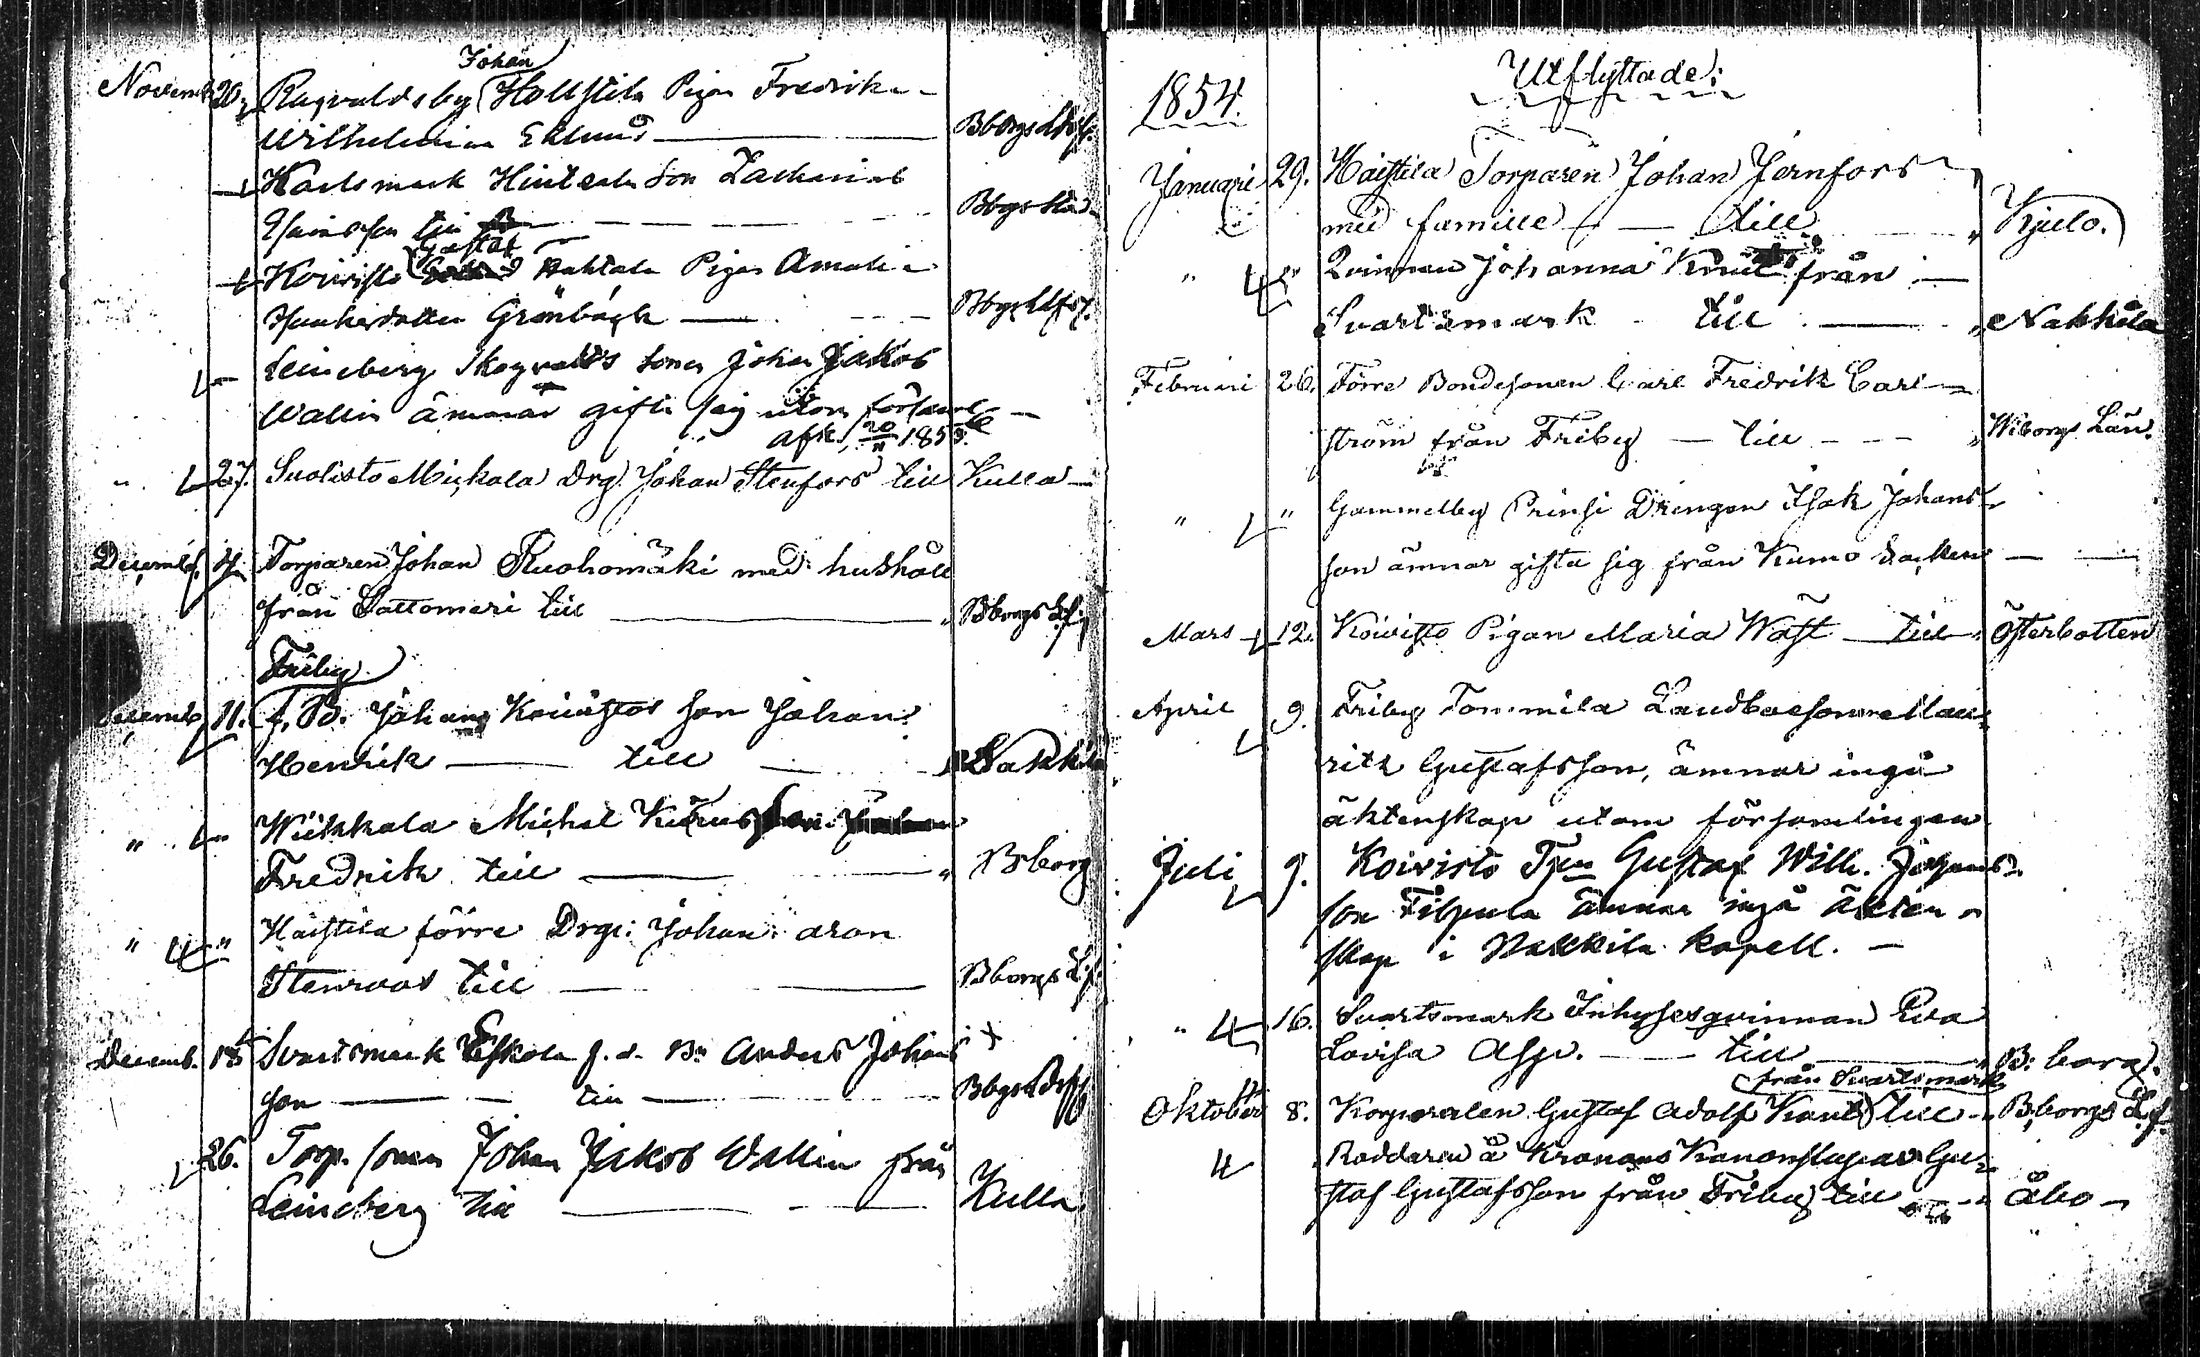 Johan
Novemb. 20. Ragvaldsby Hollstila Pigan Fredrika
Wilhelmina Eklund — Bborgs Ldsf.
Svartsmark Son Zacharias
till — Bbgs stad
Gustaf
Koivisto Pigan Amalia
Grönbäck — Bbgs Ldsf.
Leineberg Skogvalds sonen Johan Jakob
Wallin ämnar gifta sig utom församl. —
afk. 20/11 1853.
" 27. Suolisto Mickala Drg. Johan Stenfors till Kulla —
Decemb. 4. Torparen Johan Ruohomäki med hushåll
från Sattomeri till — " Bborgs Lf.
Friby
Decemb. 11. f. B. Johan Koivistos son Johan
Henrik — till — Nakkila
" " Wiikkala Michel
Fredrik till — " Bborg
" " Haistila förre Drg: Johan aron
Stenroos till — Bborgs L.f.
Decemb. 18 Svartsmark Eskola f. d. Bn Anders Johans
son — till — Bbgs Ldsf
26. Torp. sonen Johan Jakob Wallin från
Leineberg till — Kulla
1854. Utflyttade:
Januarii 29. Haistila Torparen Johan Jernfors
med famille — till — " Kjulo.
" " Qvinnan Johanna från —
Svartsmark - till — " Nakkila
Februari 26. Förre Bondesonen Carl Fredrik Carl-
ström från Friby — till — " Wiborgs Län.
" " Gammelby Prinsi Drängen Isak Johans-
son ämnar gifta sig från Kumo socken — —
Mars 12. Koivisto Pigan Maria Wäst — till " Österbotten
April 9. Friby Tommila Landbosonen Mau-
ritz Gustafsson, ämnar ingå
äktenskap utom församlingen
Juli 9. Koivisto Gustaf Wilh. Johans-
son Filpula ämnar ingå äkten-
skap i Nakkila kapell. —
" 16. Svartsmark Inhysesqvinnan Eva
Lovisa Asp. — till — " B:borg.
från Svartsmark
Oktober 8. Korporalen Gustaf Adolf till - " B:borgs L.f.
Roddaren å Kronans Kanonslupar Gu-
staf Gustafsson från Friby till — " Åbo —